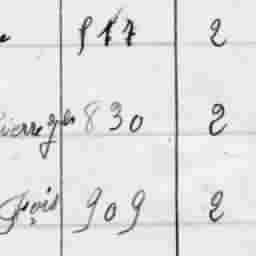 817 2
Pierre g.des 830 2
Fçois 909 2